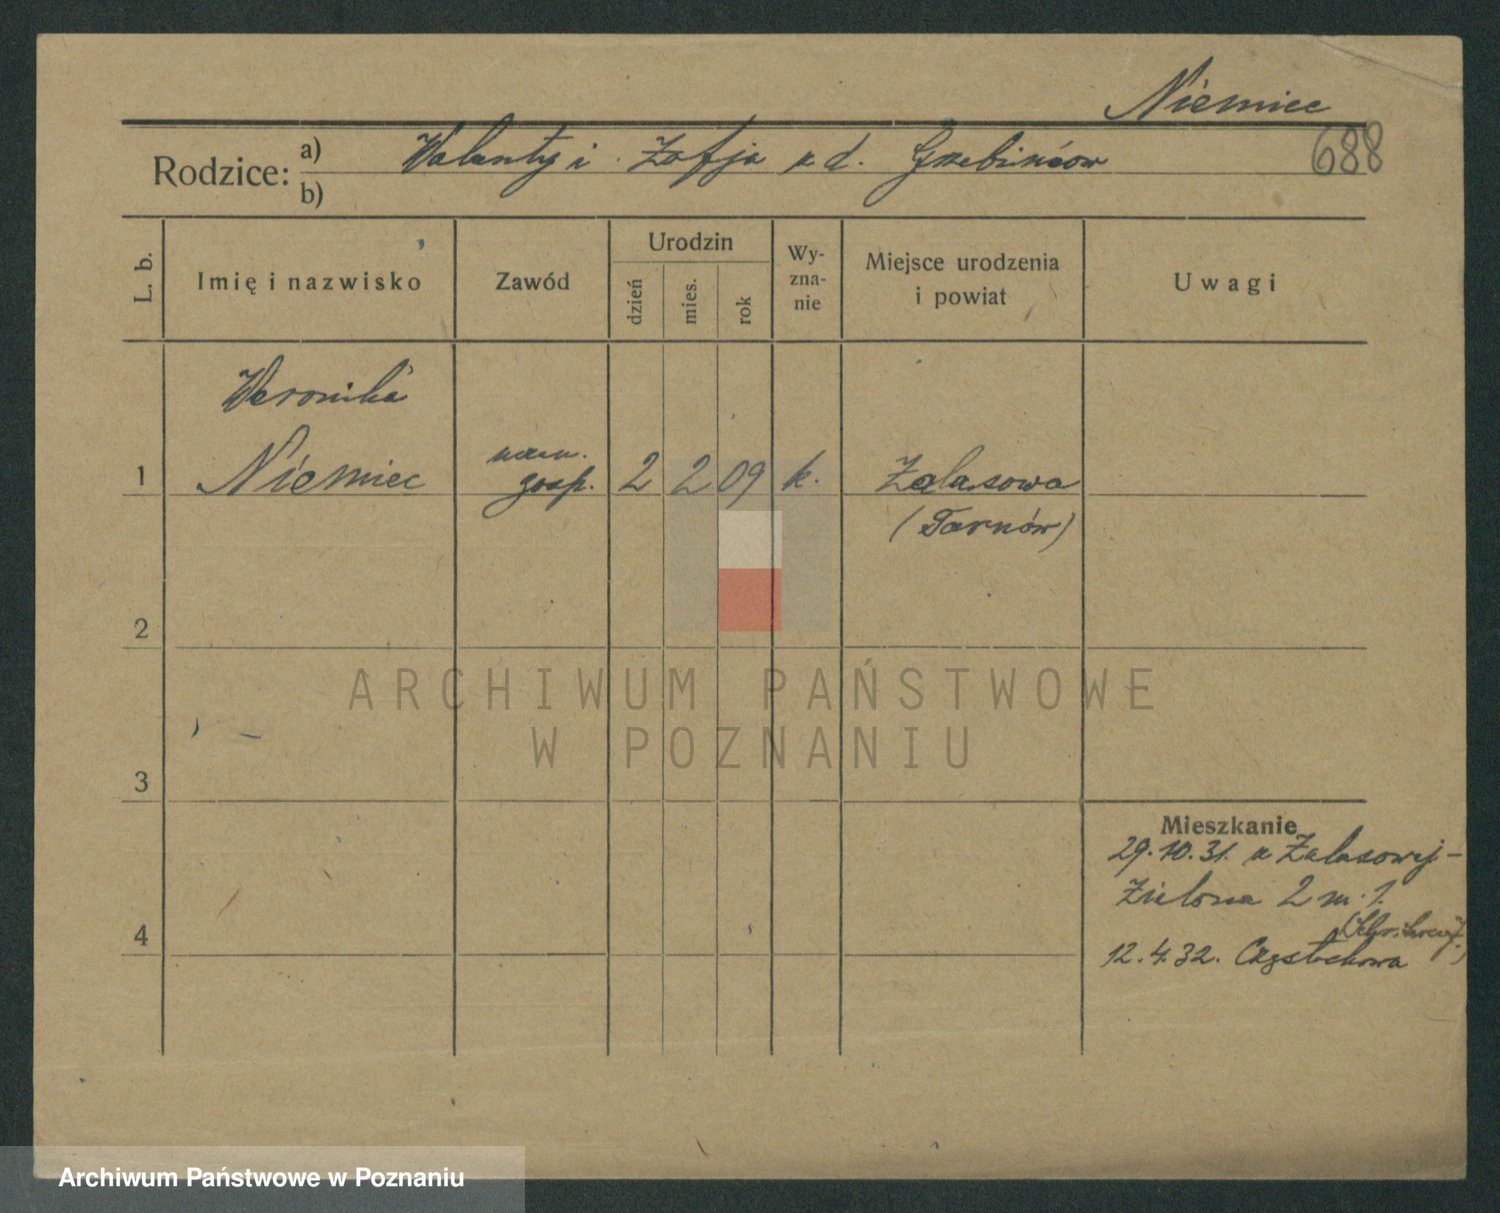 Niemiec
688
Rodzice: a) Walenty i Zofja z d.
b)
L. b.
Imię i nazwisko
Zawód
Urodzin
dzień
mies.
rok
Wy-
zna-
nie
Miejsce urodzenia
i powiat
Uwagi
Weronika
1 Niemiec gosp. 2 2 09 k. Zalasowa
(Tarnów)
2
3
4
ARCHIWUM PAŃSTWOWE
W POZNANIU
Mieszkanie
29.10.31. z Zalasowej -
Zielona 2 m. 1.
12.4.32. Częstochowa
Archiwum Państwowe w Poznaniu